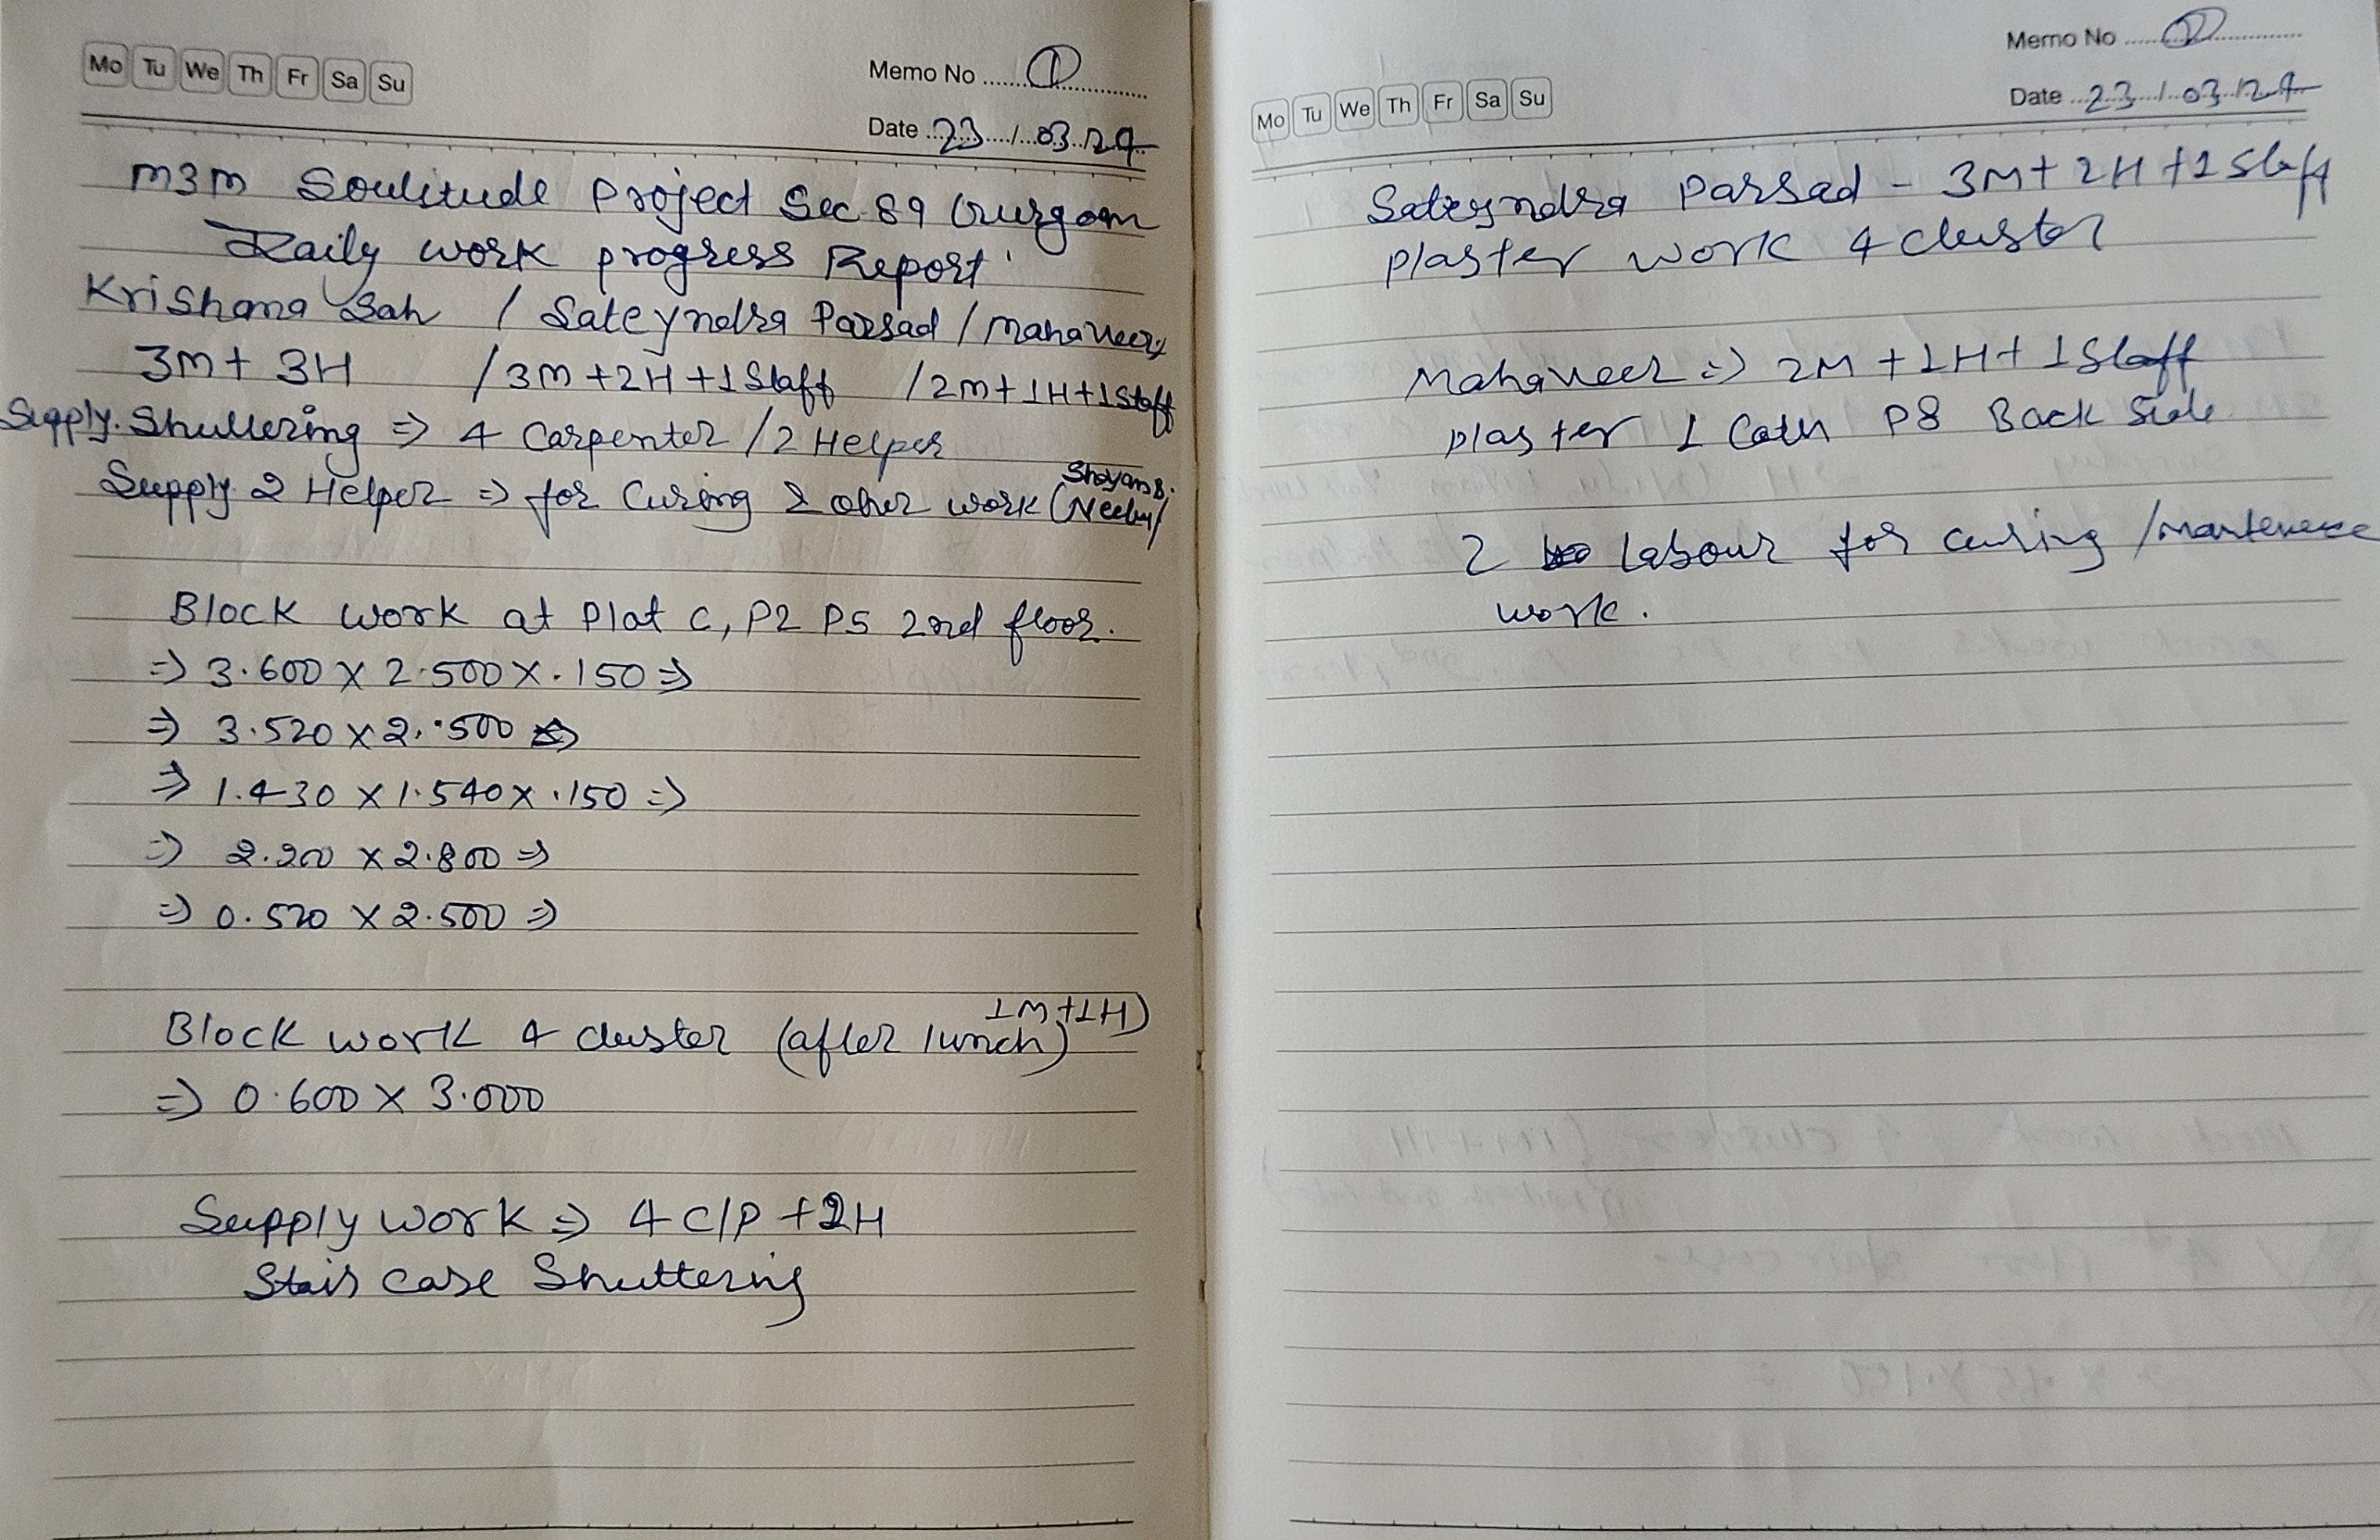 Mo Tu We Th Fr Sa Su
Memo No ①
Date 23/03/24
M3M Soulitude Project Sec 89 Gurgaon
Daily work progress Report
Krishana Sah / Sateyndra Parsad / Mahaveer
3M + 3H / 3M + 2H + 1 Staff / 2M + 1H + 1 Staff
Supply. Shuttering => 4 Carpenter / 2 Helper
Supply 2 Helper => for Curing & other work
Block work at Plot C, P2 P5 2nd floor.
=> 3.600 X 2.500 X .150 =>
=> 3.520 X 2.500 =>
=> 1.430 X 1.540 X .150 =>
=> 2.200 X 2.800 =>
=> 0.520 X 2.500 =>
Block work 4 cluster (after lunch) 1M + 1H)
=> 0.600 X 3.000
Supply work => 4 C/P + 2H
Stair case Shuttering
Mo Tu We Th Fr Sa Su
Memo No ②
Date 23/03/24
Sateyndra Parsad - 3M + 2H + 1 Staff
plaster work 4 cluster
Mahaveer => 2M + 1H + 1 Staff
plaster 1 P8 Back Side
2 Labour for curing / mantenece
work.